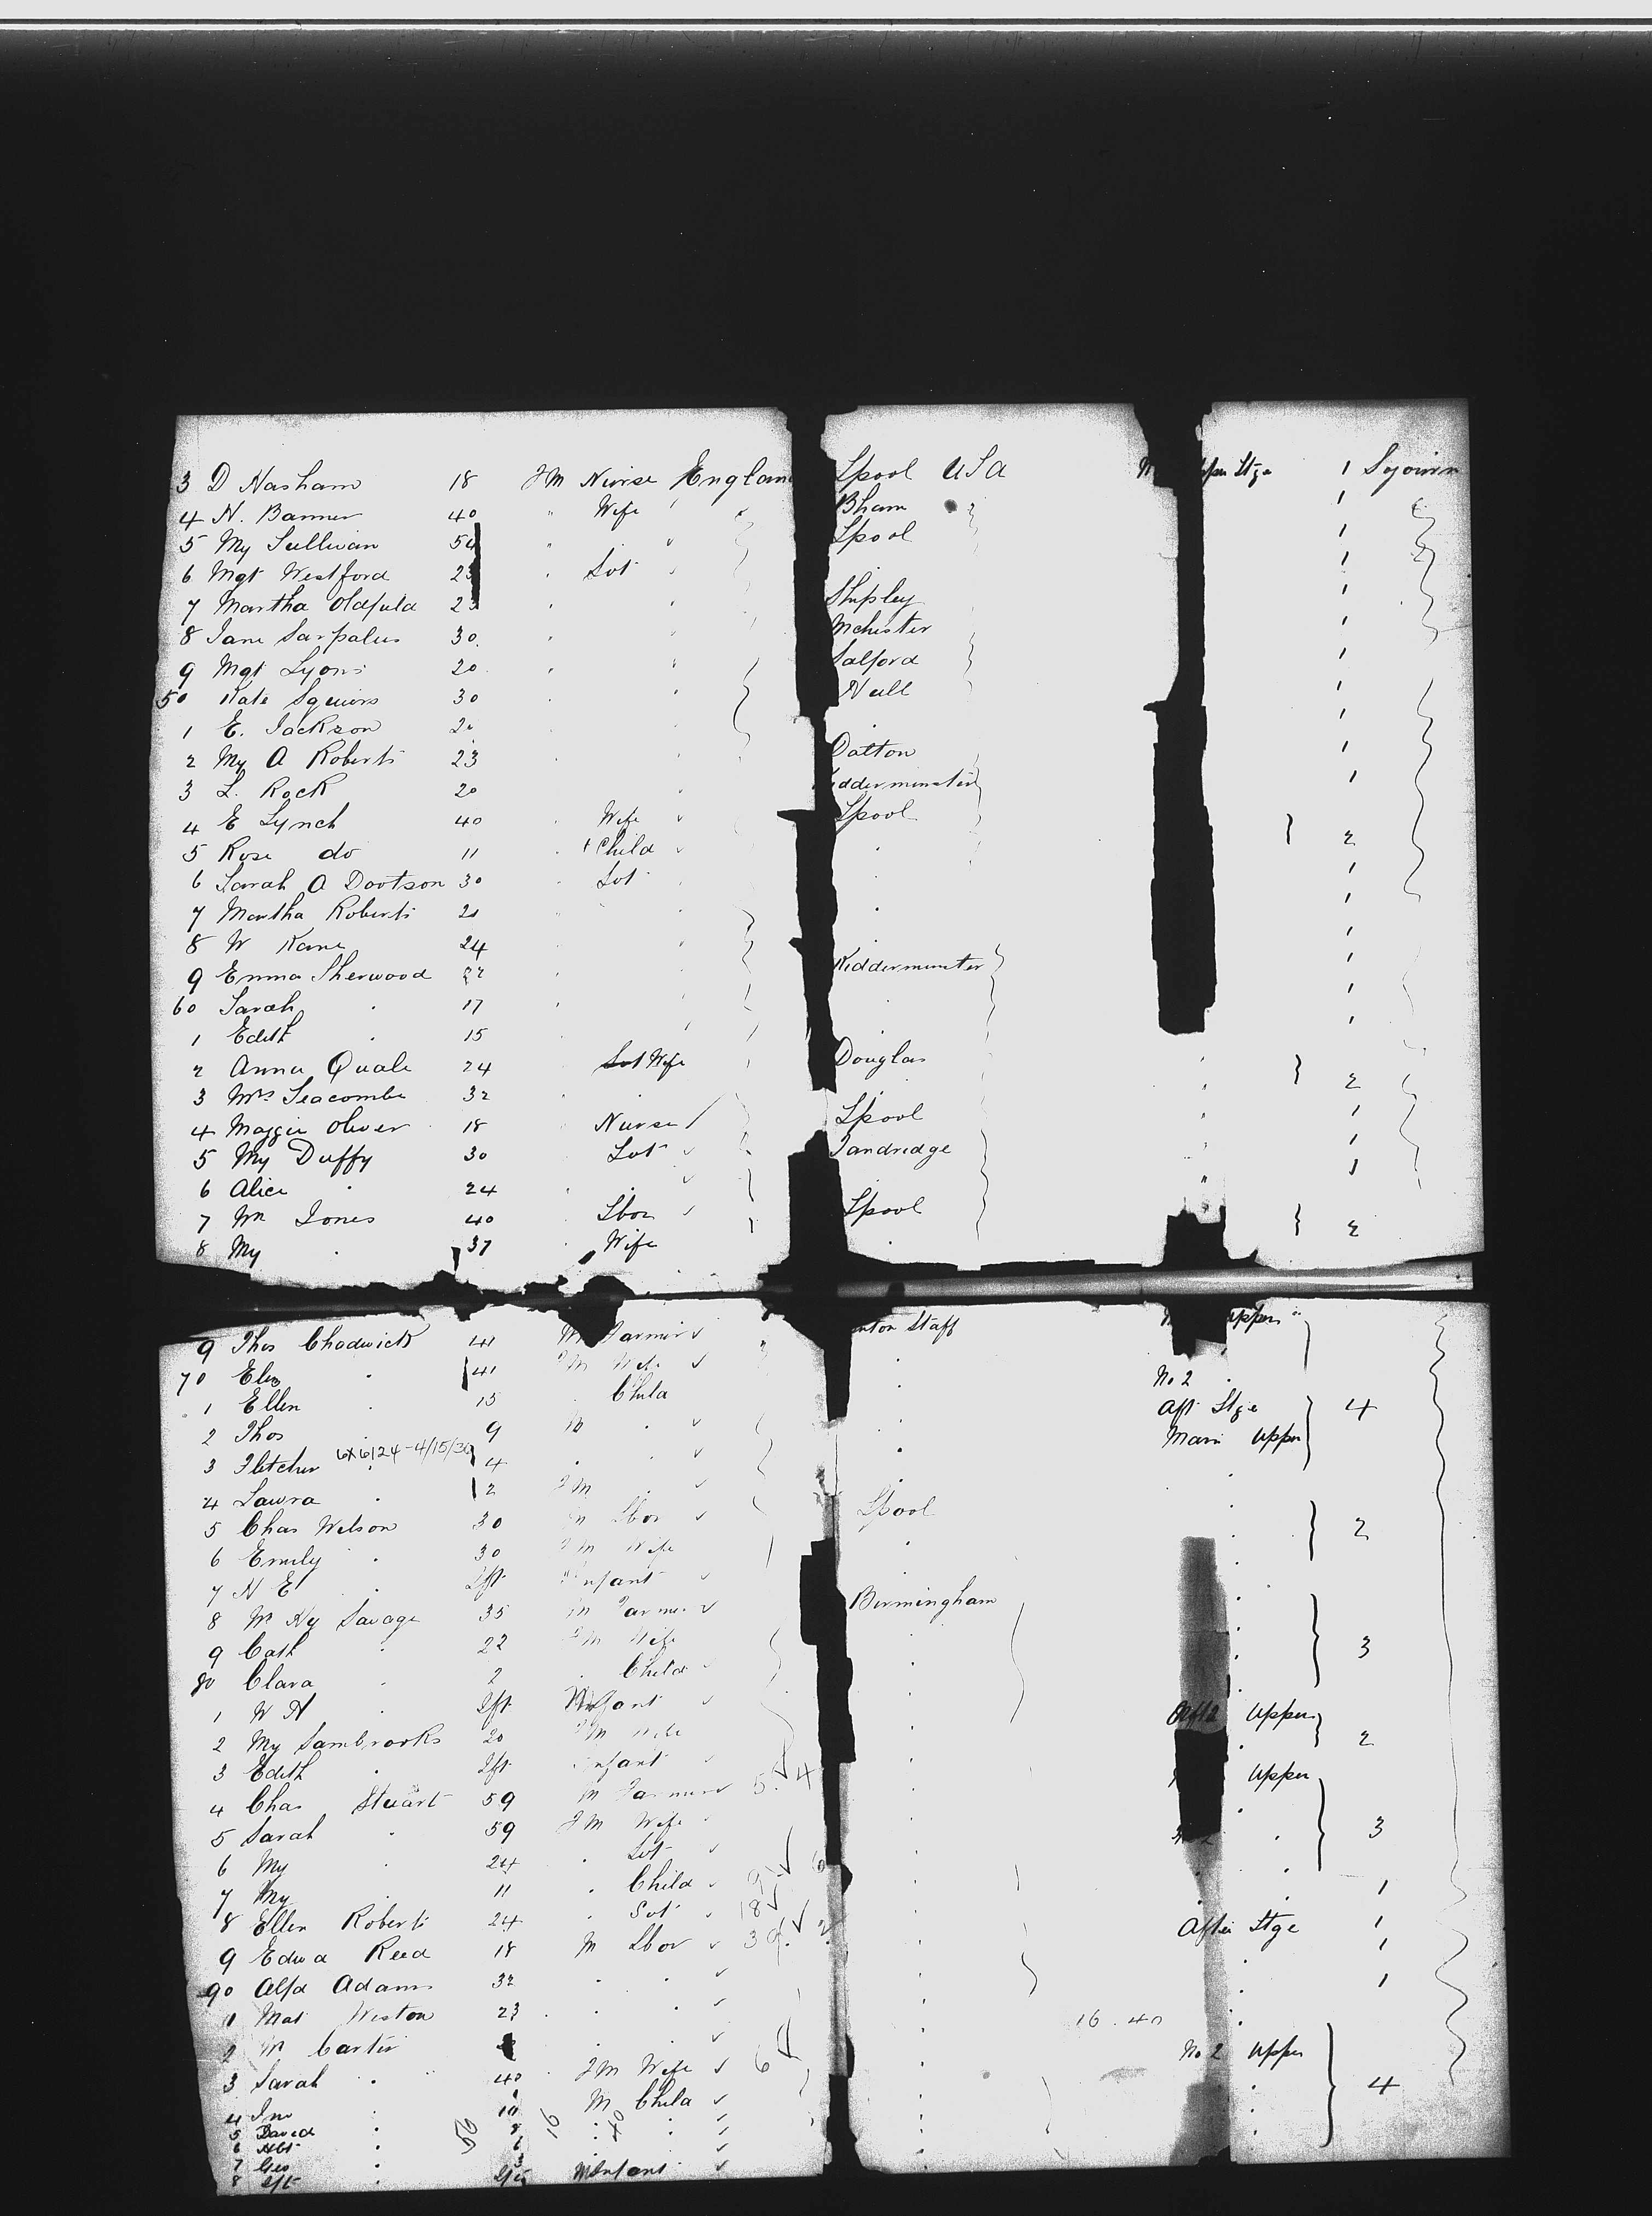 3 D Hasham 18 FM Nurse England Lpool USA Upper Stge 1 Sojourn
4 N. Banner 40 " Wife Bham 1
5 My Sullivan 54 " Lpool 1
6 Mgt Westford 23 Sot 1
7 Martha Oldfield 23 Shipley 1
8 Jane 30 Mchester 1
9 Mgt Lyons 20 Salford 1
50 Kate Squires 30 Hull 1
1 E. Jackson 1
2 My A Roberts 23 Dalton 1
3 L. Rock 20 Kidderminster 1
4 E Lynch 40 Wife Lpool } 2
5 Rose do 11 Child
6 Sarah A Dootson 30 Sot 1
7 Martha Roberts 1
8 W Kane 24 1
9 Emma Sherwood 22 Kidderminster 1
60 Sarah 17 1
1 Edith 15 1
2 Anna Quale 24 Wife Douglas } 2
3 Mrs Seacombe 32
4 Maggie Oliver 18 Nurse Lpool 1
5 My Duffy 30 Sot 1
6 Alice 24 1
7 Wm Jones 40 Lbor Lpool } 2
8 My 37 Wife
9 Thos Chadwick 41 M Farmer Staff Upper
70 Eliz 41 FM Wife No 2
1 Ellen 15 Child Aft Stge 4
2 Thos 9 M Main Upper
3 Fletcher 6x6124-4/15/30 4
4 Laura 2 FM
5 Chas Wilson 30 M Lbor Lpool } 2
6 Emily 30 FM Wife
7 H E Ift Infant
8 Wm Hy Savage 35 M Farmer Birmingham
9 Cath 22 FM Wife } 3
80 Clara 2 Child
1 W H Ift Infant
2 My Sambrooks 20 FM Wife Upper } 2
3 Edith Ift Infant
4 Chas Stuart 59 M Farmer 5 4 Upper
5 Sarah 59 FM Wife } 3
6 My 24 Sot
7 My 11 Child 1
8 Ellen Roberts 24 Sot 18 After Stge 1
9 Edwd Reed 18 M Lbor 1
90 Alfd Adams 32 1
1 Mat Weston 23 16.40
2 Wm Carter No 2 Upper
3 Sarah 40 FM Wife 6 } 4
4 Jno 10 M Child
5 David
6 Abt 6
7 Geo 3
8 Ift M Infant